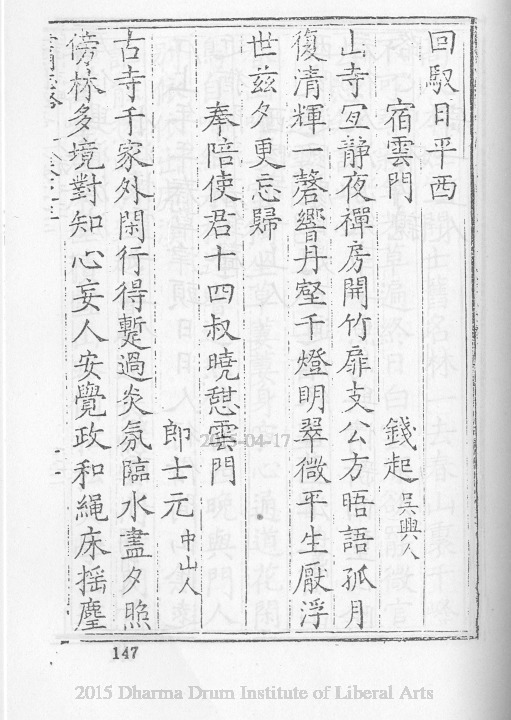 回馭日平西
宿雲門
錢起 吳興人
山寺宜靜夜禪房開竹扉支公方晤語孤月
復清輝一磬響丹壑千燈明翠微平生厭浮
世茲夕更忘歸
奉陪使君十四叔曉憩雲門
郎士元 中山人
古寺千家外閑行得蹔過炎氛臨水盡夕照
傍林多境對知心妄人安覺政和繩床揺麈
147
2015 Dharma Drum Institute of Liberal Arts